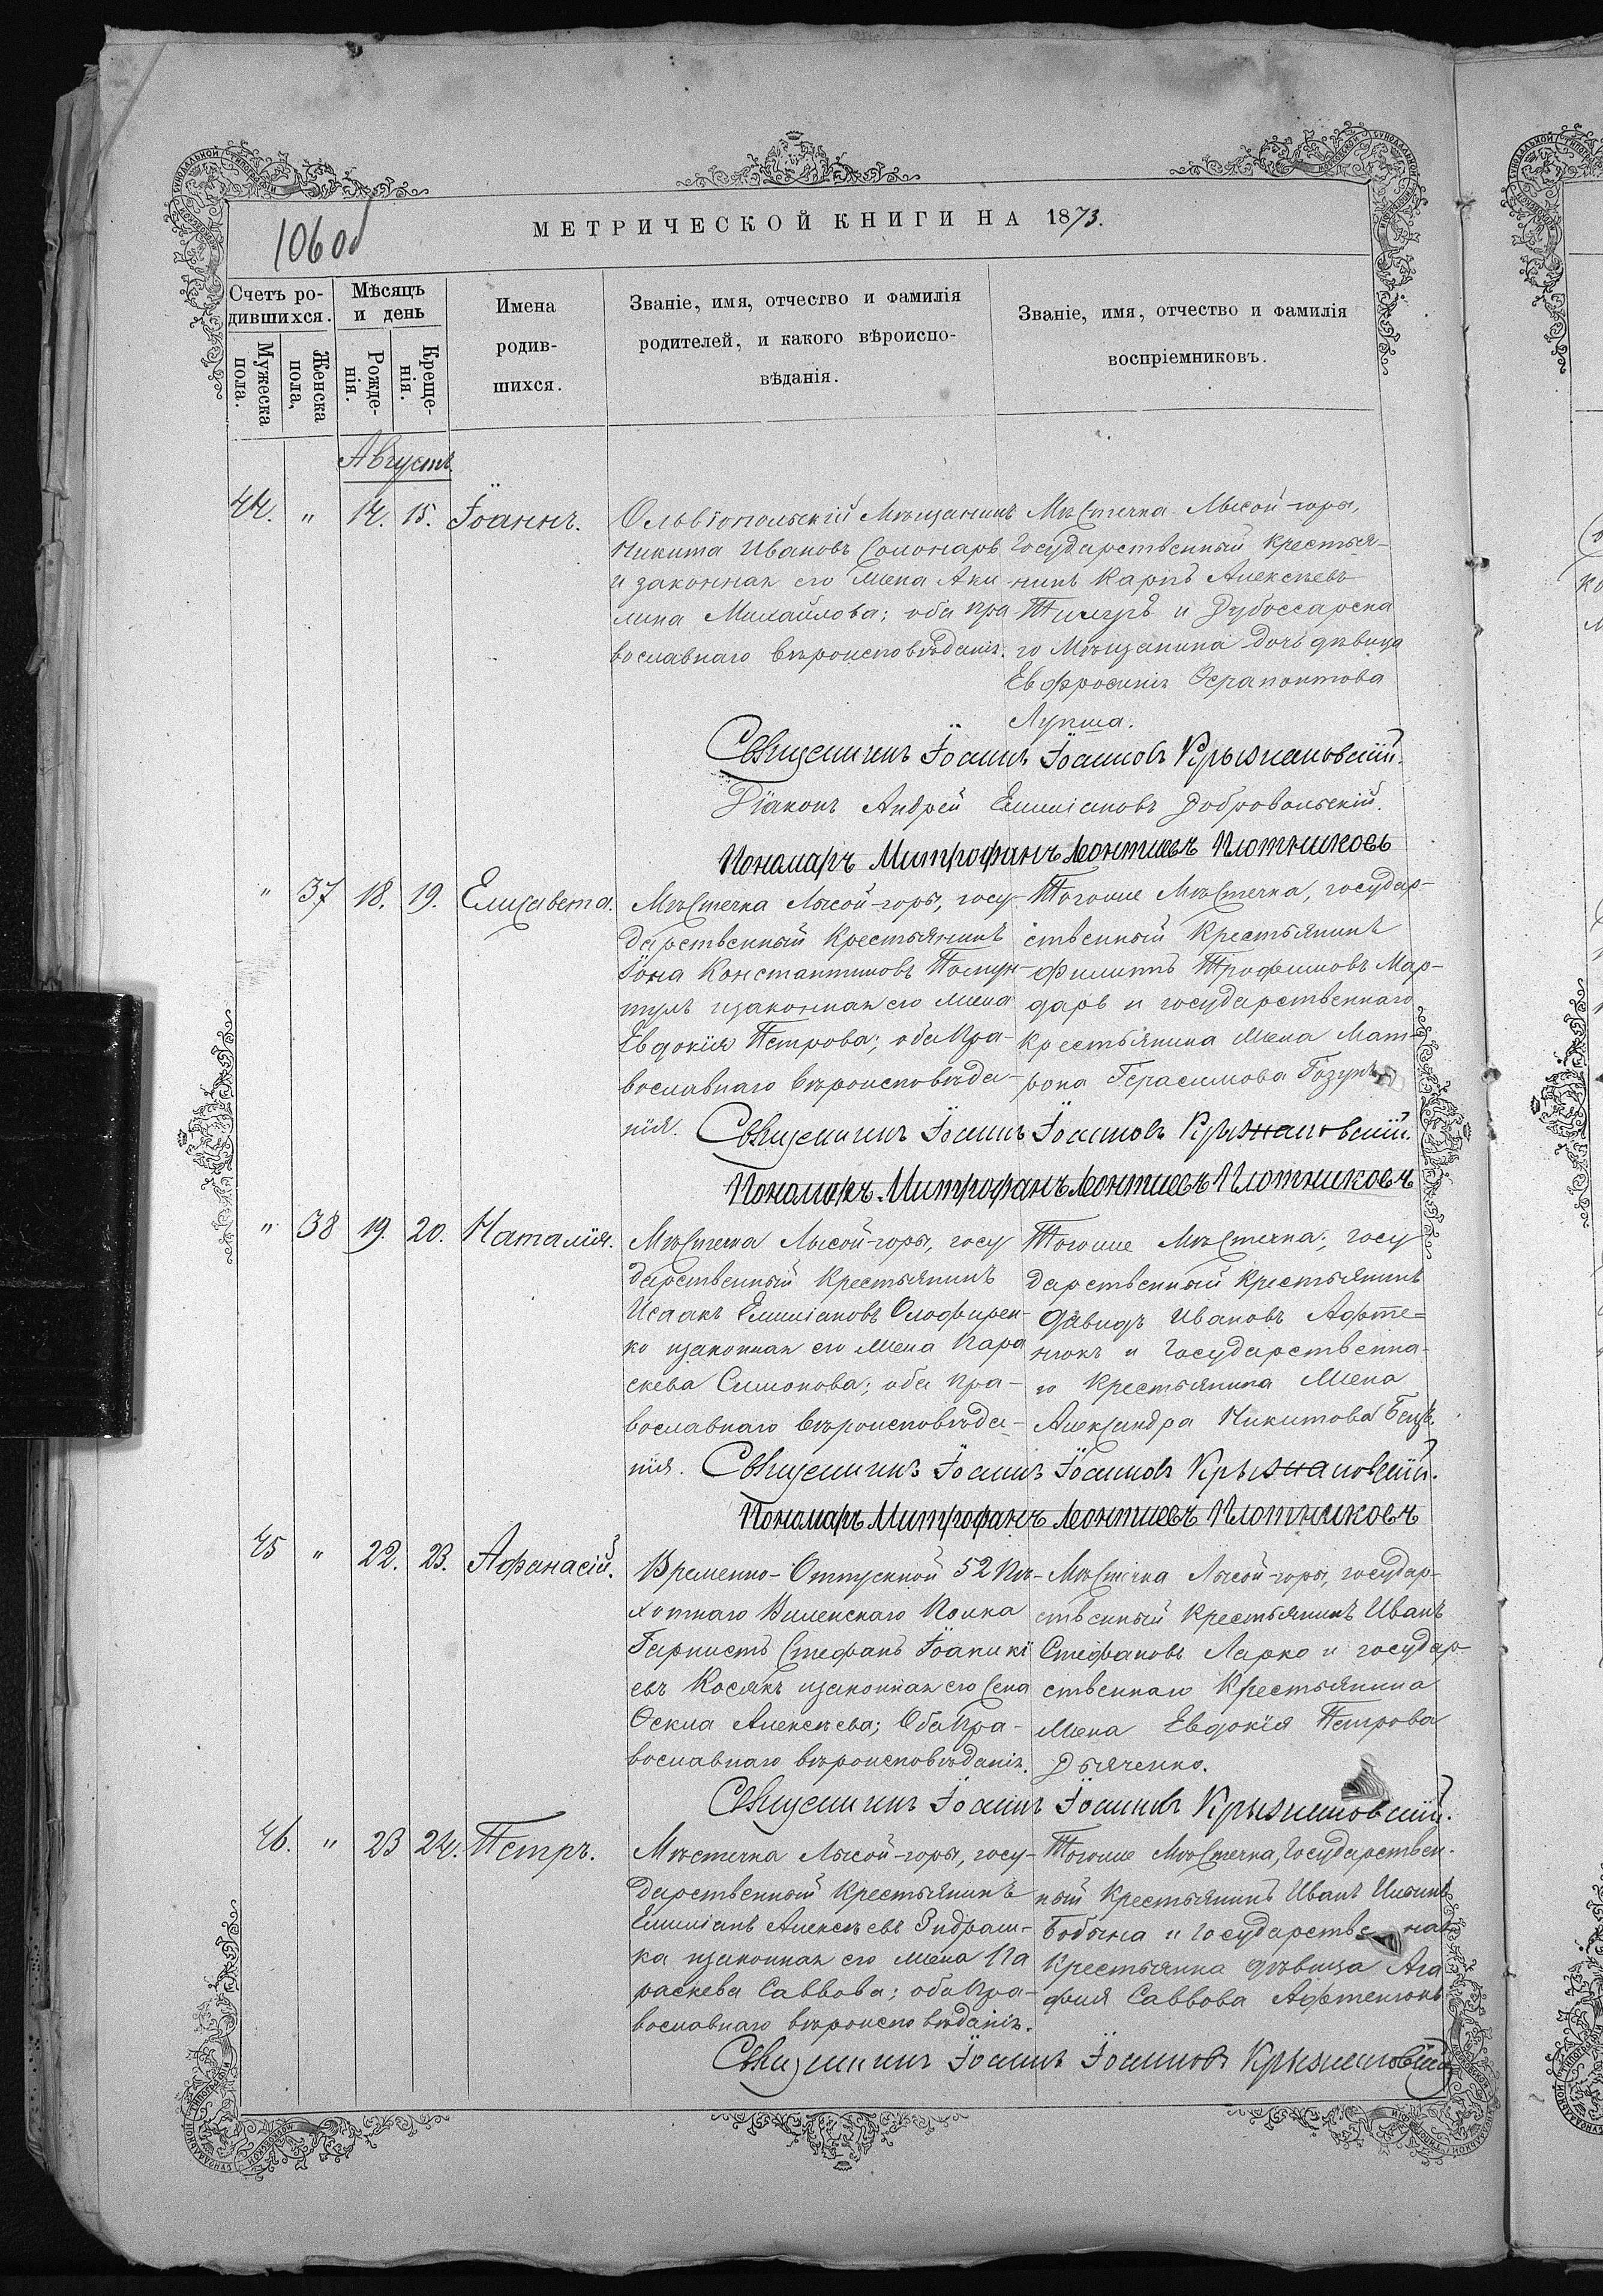 106 об
МЕТРИЧЕСКОЙ КНИГИ НА 1873.
Счетъ ро-
дившихся.
Мужеска
пола.
Женска
пола,
Мѣсяцъ
и день
Рожде-
нія.
Креще-
нія.
Имена
родив-
шихся.
Званіе, имя, отчество и фамилія
родителей, и какого вѣроиспо-
вѣданія.
Званіе, имя, отчество и фамилія
воспріемниковъ.
Августъ.
44. " 14. 15. Іоаннъ.
Ольвіопольскій Мѣщанинъ
Никита Ивановъ Сопонарь
и законная его Жена Аки
лина Михайлова; оба пра
вославнаго вѣроисповѣданія.
Мѣстечка Лысой-горы,
Государственный крестья-
нинъ Карпъ Алексѣевъ
и Дубоссарска
го Мѣщанина дочь дѣвица
Евфросинія Ѳерапонтова
Лупша.
Священникъ Іоаннъ Іоанновъ Крыжановскій.
Діаконъ Андрей Емиліановъ Добровольскій.
Пономарь Митрофанъ Леонтіевъ Плотниковъ
" 37 18. 19. Елисавета.
Мѣстечка Лысой-горы, госу-
дарственный Крестьянинъ
Іона Константиновъ
и законная его жена
Евдокія Петрова; оба Пра-
вославнаго вѣроисповѣда-
нія.
Тогоже Мѣстечка, государ-
ственный Крестьянинъ
Филиппъ Трофимовъ Мар-
дарь и государственнаго
крестьянина жена Мат-
рона Герасимова
Священникъ Іоаннъ Іоанновъ Крыжановскій.
Пономарь Митрофанъ Леонтіевъ Плотниковъ
" 38 19. 20. Наталія.
Мѣстечка Лысой-горы, госу
дарственный Крестьянинъ
Исаакъ Емиліановъ Олофирен-
ко и законная его жена Пара
скева Симонова; оба пра-
вославнаго вѣроисповѣда-
нія.
Тогоже Мѣстечка; госу
дарственный крестьянинъ
Давидъ Ивановъ Афте-
нюкъ и Государственна-
го Крестьянина Жена
Александра Никитова
Священникъ Іоаннъ Іоанновъ Крыжановскій.
Пономарь Митрофанъ Леонтіевъ Плотниковъ
45 " 22. 23. Афанасій.
Временно-Отпускной 52 Пѣ-
хотнаго Виленскаго Полка
Горнистъ Стефанъ Іоаникі
евъ Косякъ и законная его Жена
Ѳекла Алексѣева; Оба Пра-
вославнаго вѣроисповѣданія.
Мѣстечка Лысой-горы, государ-
ственный крестьянинъ Иванъ
Стефановъ Ларко и государ-
ственнаго Крестьянина
Жена Евдокія Петрова
Дьяченко.
Священникъ Іоаннъ Іоанновъ Крыжановскій.
46. " 23 24. Петръ.
Мѣстечка Лысой-горы, госу-
дарственный Крестьянинъ
Емиліанъ Алексѣевъ Ондраш-
ка и законная его жена Па
раскева Саввова; оба Пра-
вославнаго вѣроисповѣданія.
Тогоже Мѣстечка, Государствен-
ный Крестьянинъ Иванъ Ильинъ
Бобына и Государстве ная
Крестьянка дѣвица Ага
фія Саввова Афтенюкъ
Священникъ Іоаннъ Іоанновъ Крыжановскій